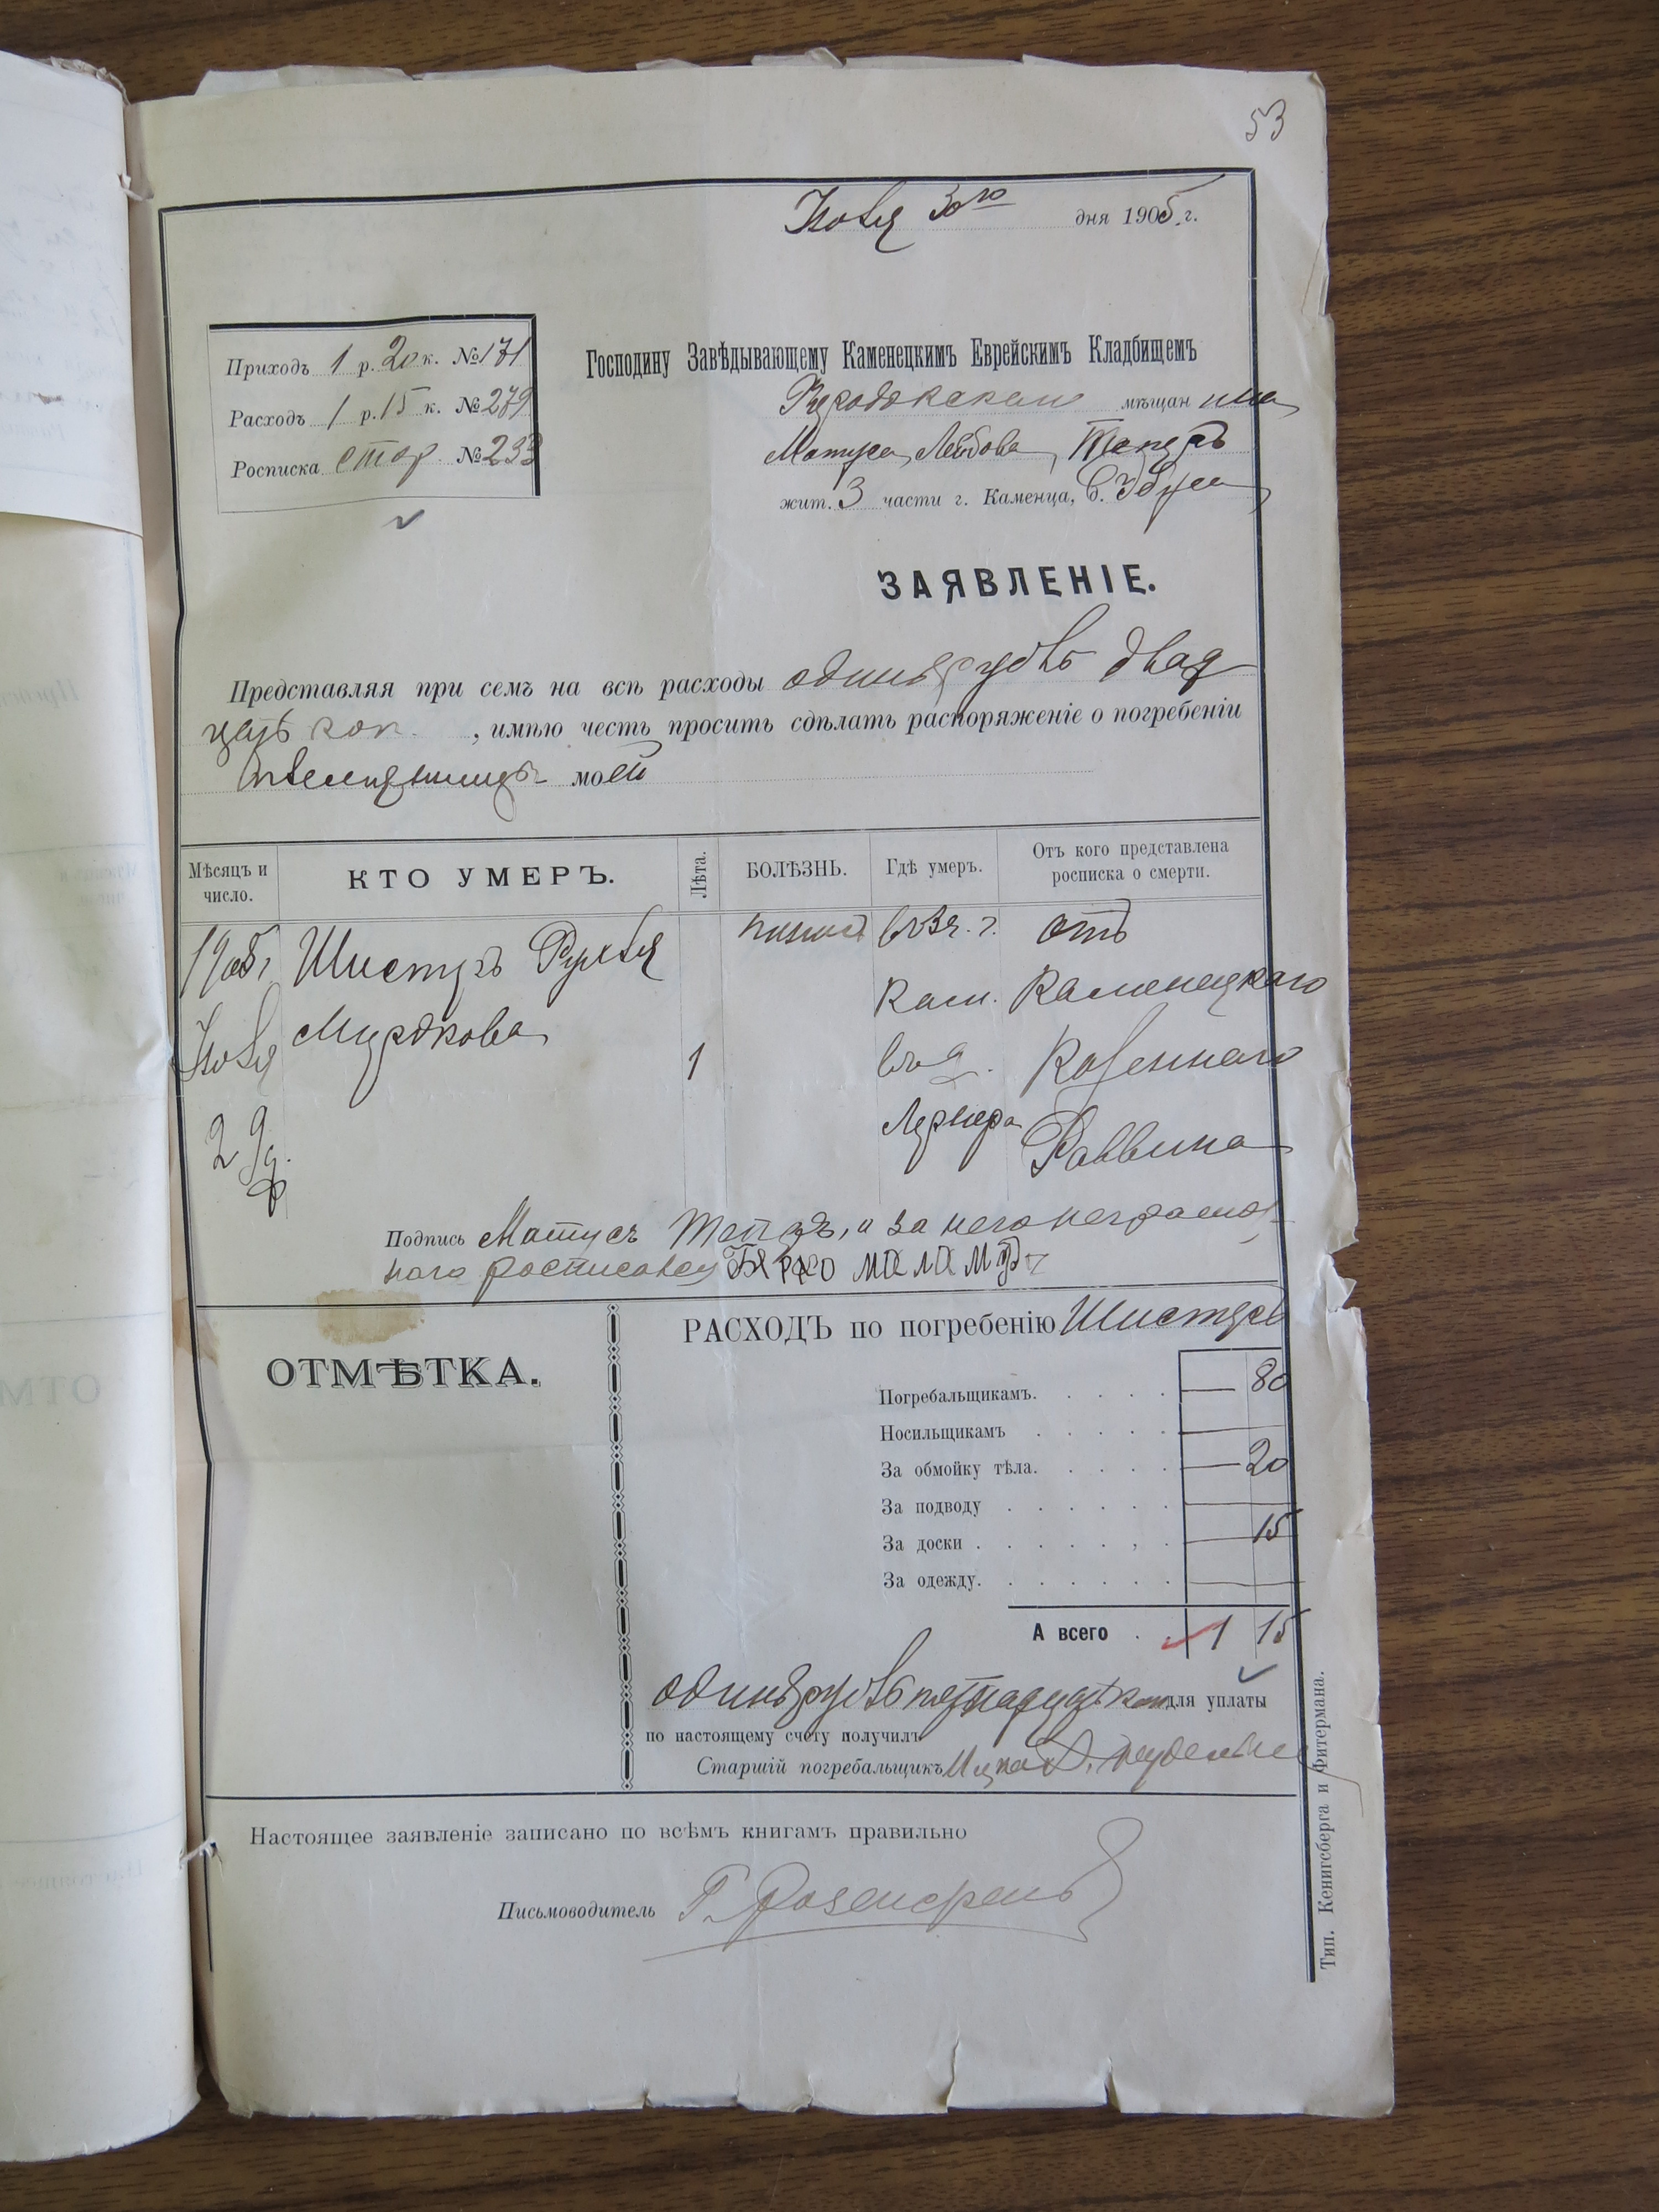 53
Іюля 30го дня 1905 г.
Приходъ 1 р. 20 к. № 171
Расходъ 1 р. 15 к. № 279
Росписка стор. № 233
Господину Завѣдывающему Каменецкимъ Еврейскимъ Кладбищемъ
мѣщанина
Матуса Лейбова
жит. 3 части г. Каменца, С.
ЗАЯВЛЕНІЕ.
Представляя при семъ на всѣ расходы одинъ рубль двад
цать коп. , имѣю честь просить сдѣлать распоряженіе о погребеніи
племянницы моей
Мѣсяцъ и число.
КТО УМЕРЪ.
Лѣта.
БОЛѢЗНЬ.
Гдѣ умеръ.
Отъ кого представлена росписка о смерти.
1905 г. Іюля 29 д.
Шистеръ Рухля
Мордкова
1
въ 3 ч. г. Кам. въ д. Лернера
отъ Каменецкаго Казеннаго Раввина
Подпись Матусъ и за него неграмот
наго росписался Берко Маламудъ
ОТМѢТКА.
РАСХОДЪ по погребенію Шистеръ
Погребальщикамъ. — 80
Носильщикамъ
За обмойку тѣла. — 20
За подводу
За доски . 15
За одежду.
А всего 1 15
одинъ рубль пятнадцать коп. для уплаты
по настоящему счету получилъ
Старшій погребальщикъ Ицко
Настоящее заявленіе записано по всѣмъ книгамъ правильно
Письмоводитель Г. Розенкранъ
Тип. Кенигсберга и Фитермана.